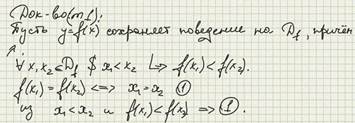 Док-во(т1):
Пусть y=f(x) сохраняет поведение на D_f, причём
↗:
∀ x₁x₂∈D_f $ x₁<x₂ ↳ f(x₁)<f(x₂).
f(x₁)=f(x₂)<=> x₁=x₂ ①
из x₁<x₂ и f(x₁)<f(x₂) => ①.